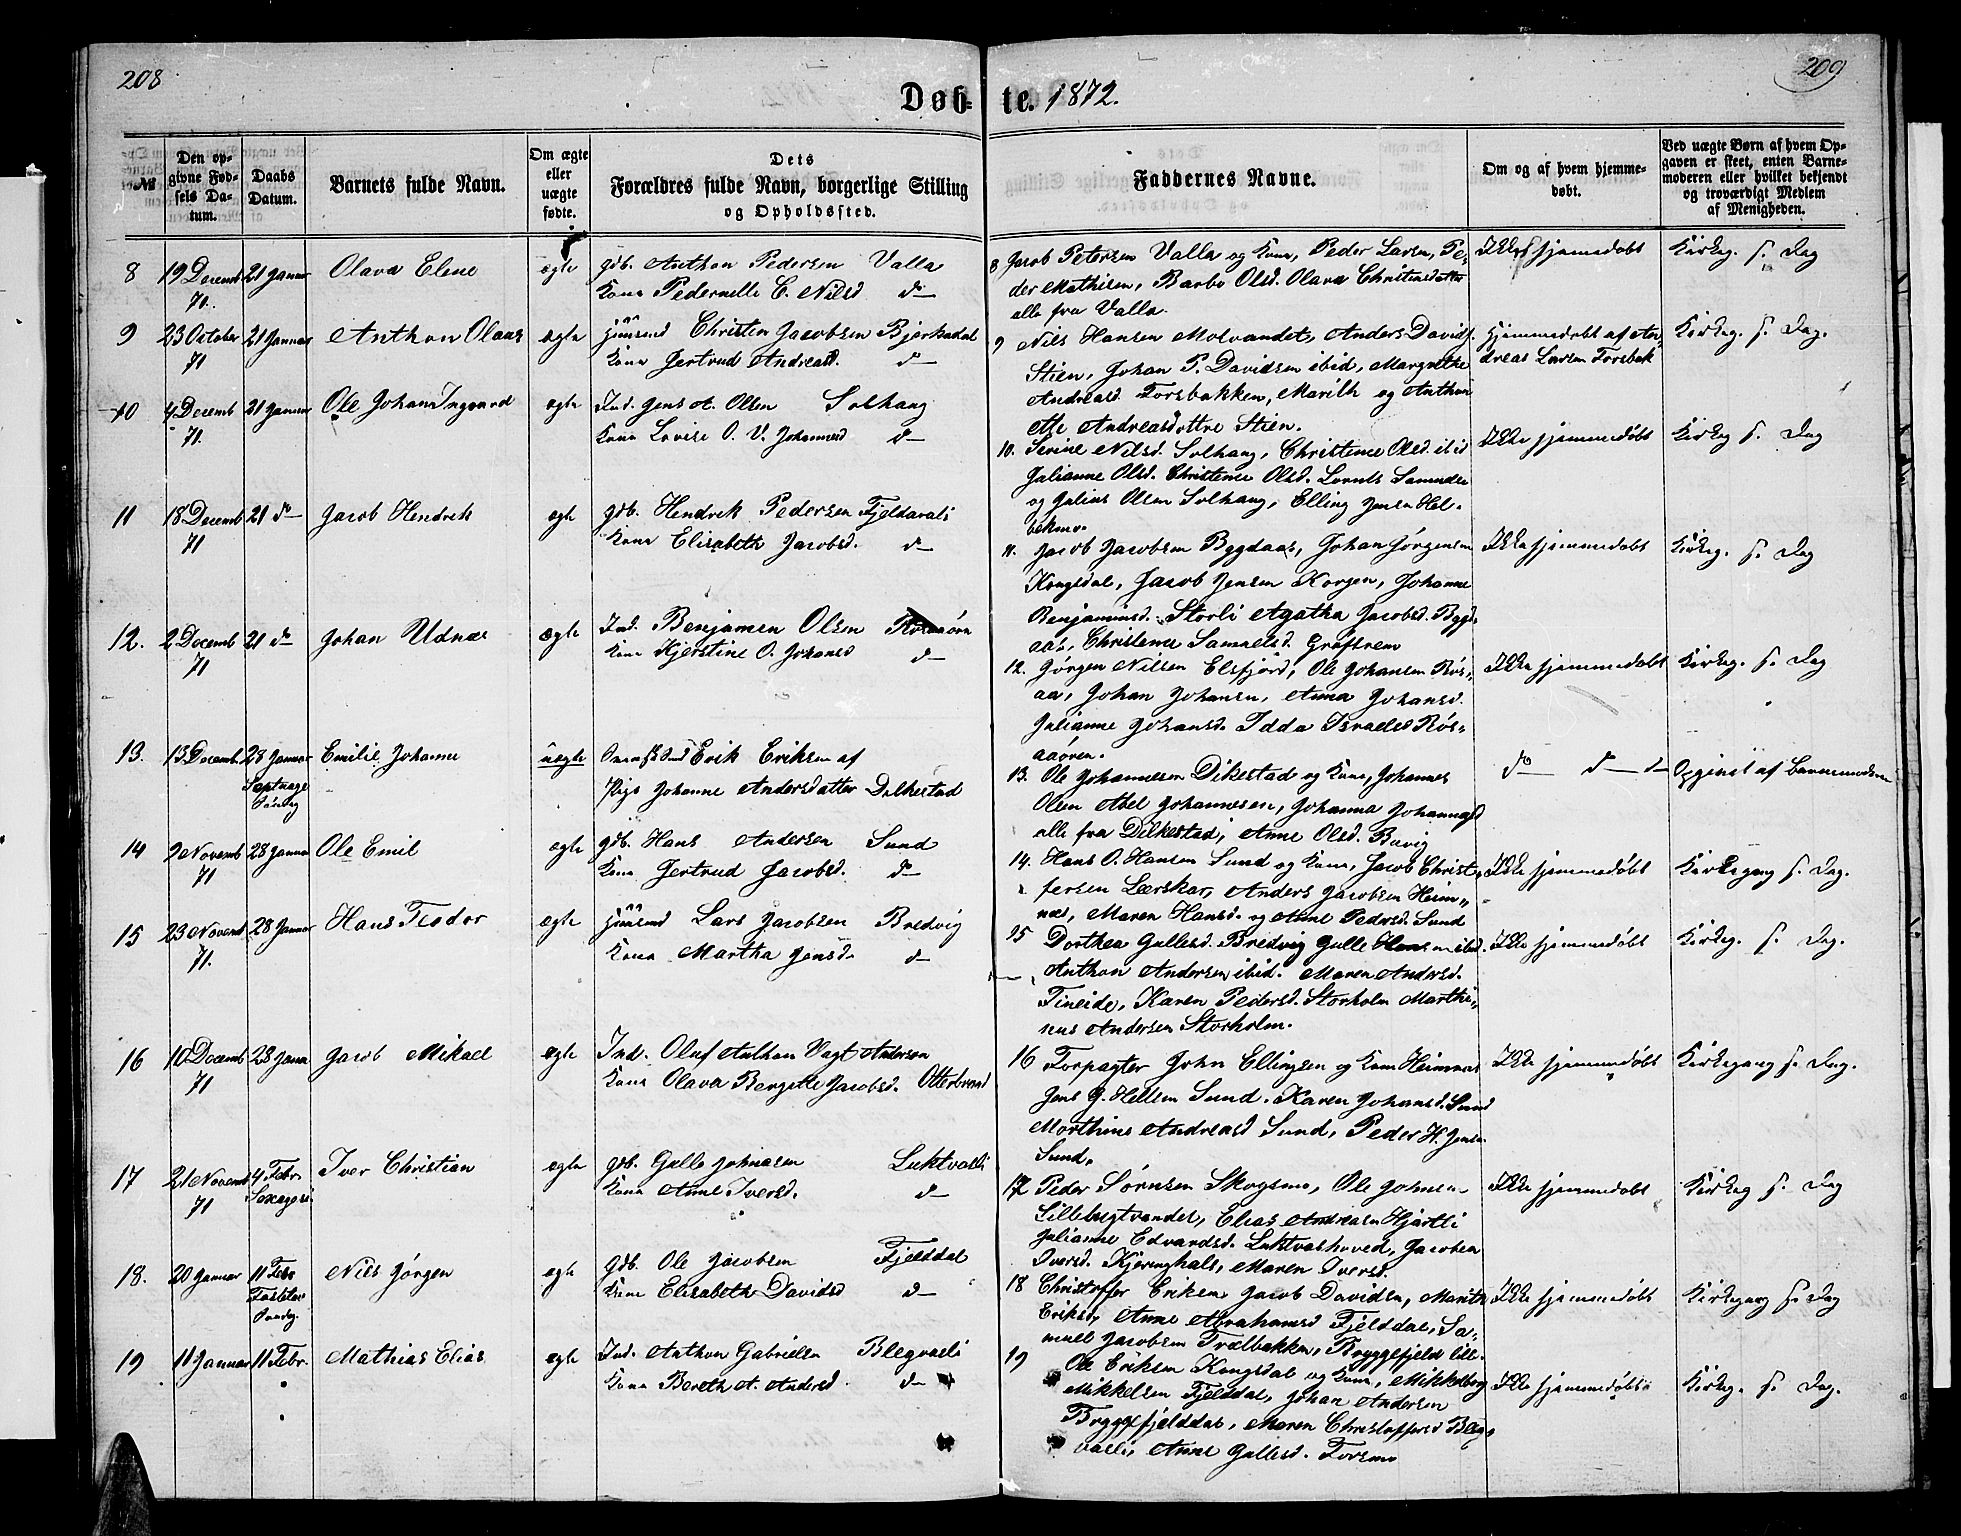 208
209
Døb-te. 1872.
№
Den op-
givne Fød-
sels Da-
tum.
Daabs
Datum.
Barnets fulde Navn.
Om ægte
eller
uægte
fødte.
Dets
Forældres fulde Navn, borgerlige Stilling
og Opholdssted.
Faddernes Navne.
Om og af hvem hjemme-
døbt.
Ved uægte Børn af hvem Op-
gaven er skeet, enten Barne-
moderen eller hvilket bekjendt
og troværdigt Medlem
af Menigheden.
8 19 Decemb 71. 21 Januar Olava Elene ægte
gdb. Anthon Pedersen Valla
Kone Pedernelle C. Nilsd do
8 Jacob Petersen Valla og Kone, Peder Larsen, Pe-
der Mathisen, Barbo Olsd. Olava Christensdatter
alle fra Valla.
Ikke hjemmedøbt
Kirkeg. s. Dag
9 23 October 71 21 Januar Anthon Olaus ægte
Huusmd Christen Jacobsen Bjerkadal
Kone Gertrud Andreasd. do
9 Nils Hansen Molvandet, Anders Davids.
Stien, Johan P. Davidsen ibid, Margrethe
Andreasd Forsbakken, Marith og Anthon
ette Andreasdøttre Stien.
Hjemmedøbt af An-
dreas Larsen Forsbak
Kirkeg. s. Dag.
10 4 Decemb 71. 21 Januar Ole Johan Ingvard ægte
Ind. Jens A. Olsen Solhaug
Kone Lovise O. V. Johannesd do
10. Serine Nilsd. Solhaug, Christense Olsd. ibid
Julianne Olsd. Christense Olsd. Lornts
og Julius Olsen Solhaug, Elling Jensen Hel-
bekmo.
Ikke hjemmedøbt
Kirkeg s. Dag
11 18 Decemb 71 21 do Jacob Hendrik ægte
gdb. Hendrik Pedersen Fjeldavli
Kone Elisabeth Jacobsd. do
11. Jacob Jacobsen Bygdaas, Johan Jørgensen
Kongsdal, Jacob Jensen Korgen, Johanne
Benjaminsd. Storli Agatha Jacobsd. Bygd-
aas, Christense Samuelsd. Graftrem
Ikke hjemmedøbt
Kirkeg. s. Dag
12. 2 Decemb 71 21 do Johan Udnæs ægte
Ind. Benjamin Olsen
Kone Kjerstine O. Johansd do
12. Jørgen Nilsen Elsfjord, Ole Johansen Røs-
aa, Johan Johansen, Anna Johansd.
Julianne Johansd. Idda Israelsd Røs-
aaøren.
Ikke hjemmedøbt
Kirkeg. s. Dag
13. 13 Decemb. 28 Januar Septuage Søndag Emilie Johanne uægte
Erik Eriksen af
Pige Johanne Andersdatter Dilkestad
13. Ole Johannesen Dilkestad og Kone, Johannes
Olsen Abel Johannesen, Johanna Johannesd
alle fra Dilkestad, Anne Olsd. Bavig
do do do
Opgivet af Barnemoderen
14 9 Novemb 71 28 Januar Ole Emil ægte
gdb. Hans Andersen Sund
Kone Gertrud Jacobsd. do
14. Hans O. Hansen Sund og Kone, Jacob Christ-
fersen Lærskar, Anders Jacobsen Heim-
næs, Maren Hansd. og Anne Pedersd. Sund
Ikke hjemmedøbt
Kirkegang s. Dag.
15 23 Novemb 71. 28 Januar Hans Teodor ægte
Huusmd Lars Jacobsen Bredvig
Kone Martha Jensd. do
15 Dorthea Gullesd. Bredvig Gulle Hansen ibid.
Anthon Andersen ibid. Maren Andersd.
Fineide, Karen Pedersd. Storholm Marthi-
nus Andersen Storholm.
Ikke hjemmedøbt
Kirkeg. s. Dag.
16 10 Decemb 71 28 Janu Jacob Mikael ægte
Ind. Oluf Anthon Vogt Andersen
Kone Olava Bergitte Jacobsd. Otterbrand
16 Forpagter John Ellingsen og Kone Heimnæs
Jens G. Hellesen Sund. Karen Johansd. Sund
Morthine Andreasd Sund, Peder H. Jensen
Sund.
Ikke hjemmedøbt
Kirkegang s. Dag.
17 21 Novemb 71 4 Febr. Sexagesi Iver Christian ægte
gdb. Gulle Johnsen Luktvatli
Kone Anne Iversd. do
17 Peder Sørnsen Skogsmo, Ole Johnsen
Lillebugtvandet, Elias Andreasen Hjartli
Julianne Edvardsd. Luktvashoved, Jacobea
Iversd. Kjeringhals, Maren Iversd.
Ikke hjemmedøbt
Kirkeg s. Dag
18. 20 Januar 11 Febr Fastelav Søndag. Nils Jørgen ægte
gdb. Ole Jacobsen Fjelddal
Kone Elisabeth Davidsd do
18 Christoffer Eriksen Jacob Davidsen, Marith
Eriksd, Anne Abrahamsd Fjelddal, Sa-
muel Jacobsen Trælbakken, Bryggefjeld lille.
Ikke hjemmedøbt
Kirkegang s. Dag
19 11 Januar 11 Febr. Mathias Elias ægte
Ind. Anthon Gabrielsen Blegvasli
Kone Bereth A. Andersd. do
19 Ole Eriksen Kongsdal og Kone, Mikkelborg
Mikkelsen Fjelddal, Johan Andersen
Bryggefjelddal, Maren Christoffersd Bleg-
vasli, Anne Gullesd. Forsmo
Ikke hjemmedøbt
Kirkeg. s. Dag.